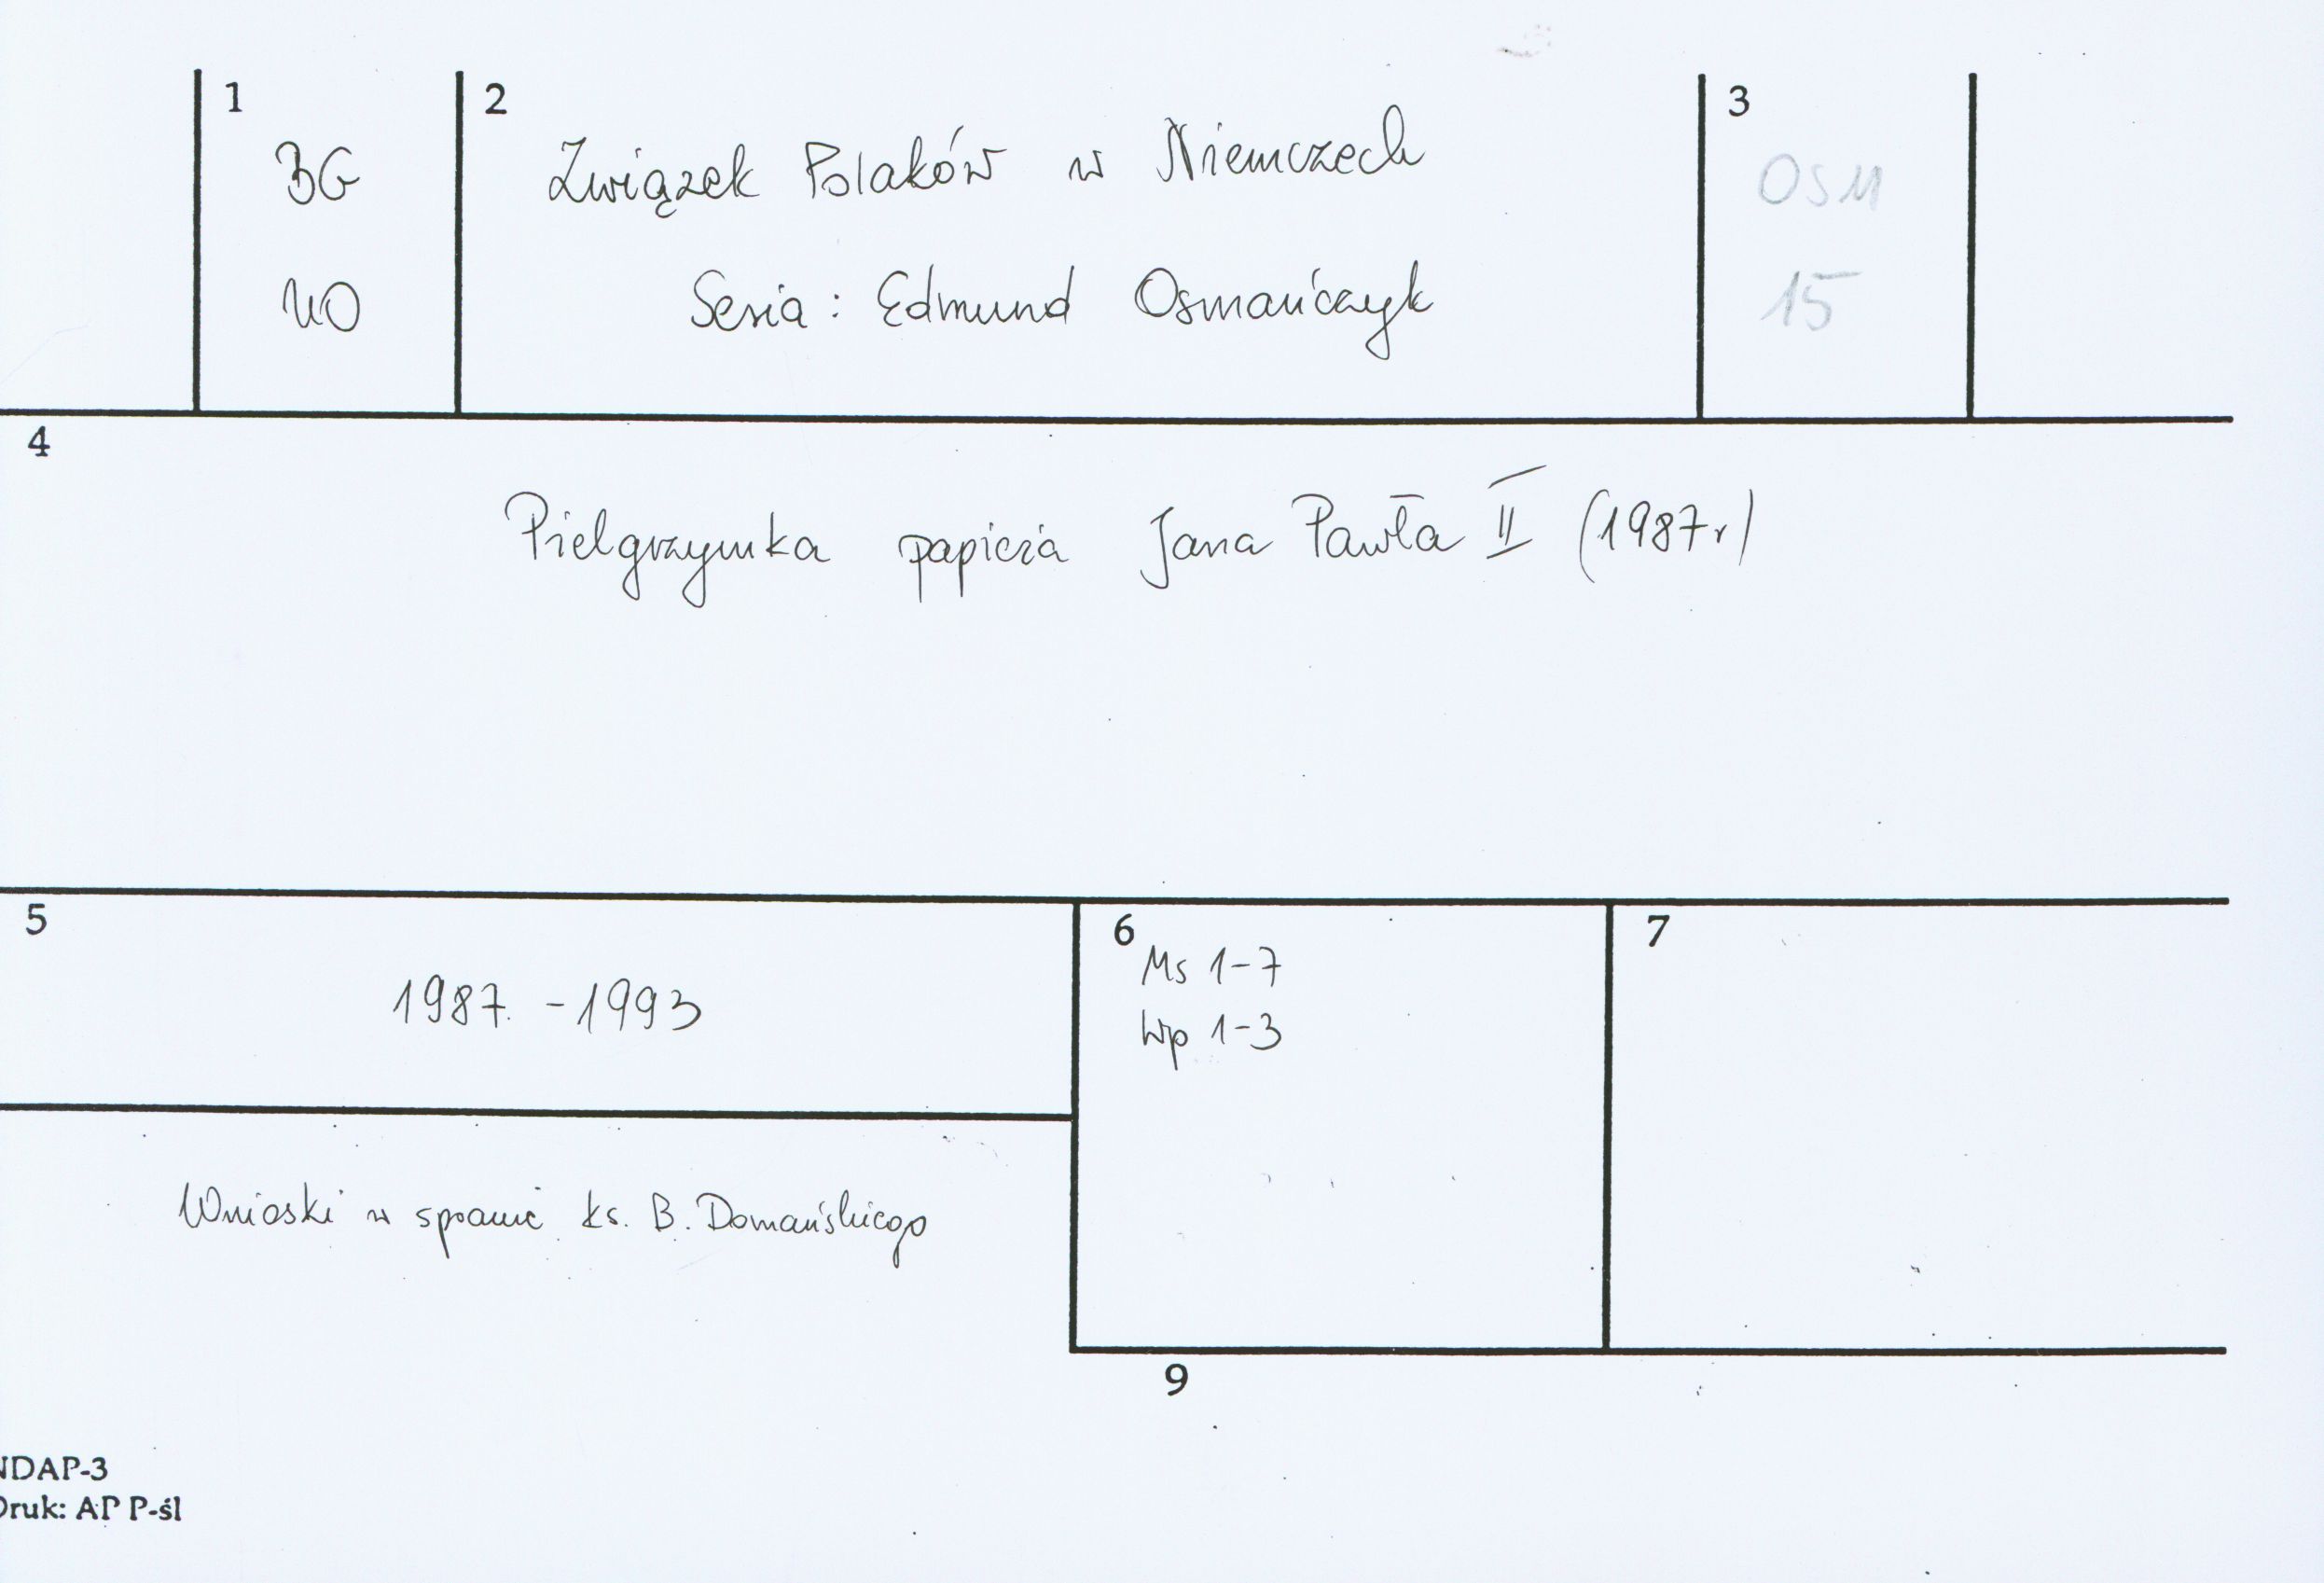 1
BG
UO
2
Związek Polaków w Niemczech
Seria: Edmund Osmańczyk
3
OSM
15
4
Pielgrzymka papieża Jana Pawła II (1987r)
5
1987 - 1993
6
Ms 1-7
Wp 1-3
7
Wnioski w sprawie ks. B. Domańskiego
9
NDAP-3
Druk: AP P-śl